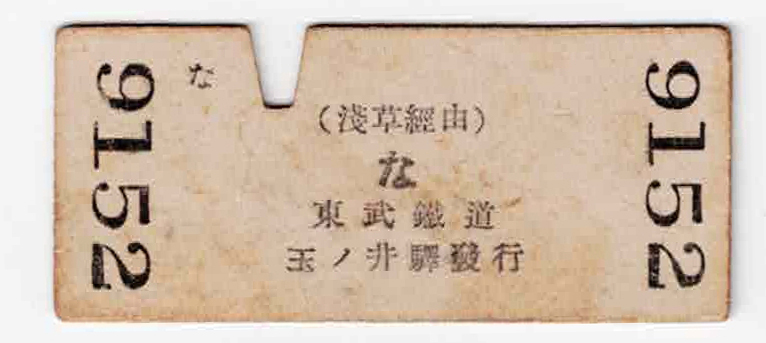 9152
な
(淺草經由)
な
東武鐵道
玉ノ井驛發行
9152